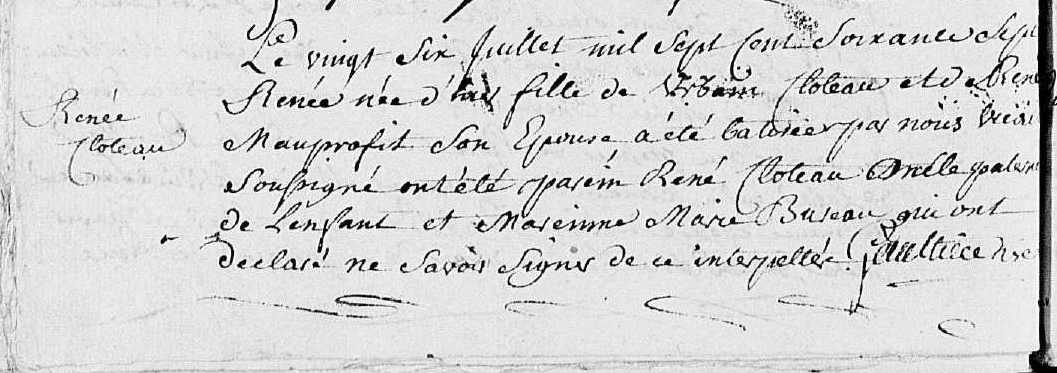 Le vingt Six Juillet mil Sept Cent Soixante Sept
Renée née d'hier fille de Urbain Cloteau et de René
Renée
Cloteau
Mauprofit Son Epouse a été batisée par nous vicai
Soussigné ont été parein René Cloteau Oncle paterne
de L'enfant et Mareinne Marie Bureau qui ont
declaré ne Savoir Signer de ce interpellés